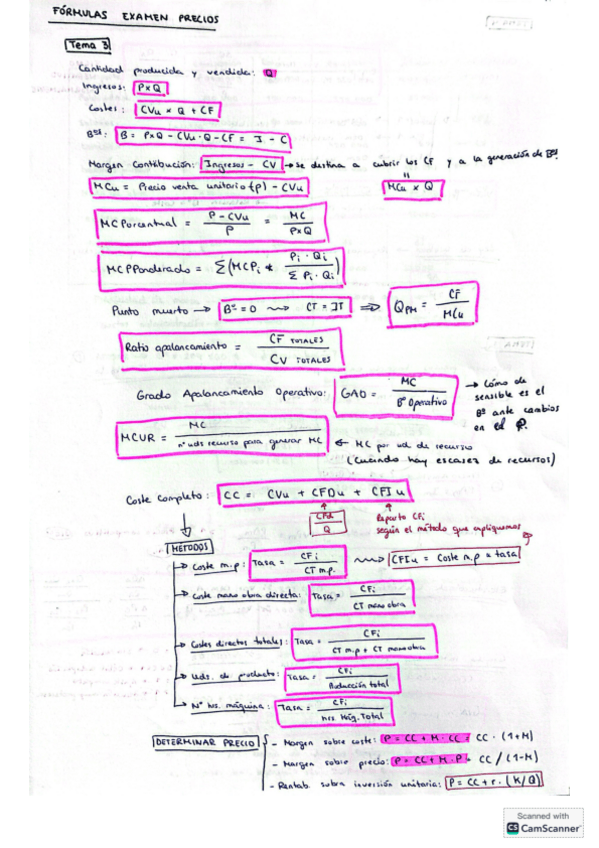 FÓRMULAS EXAMEN PRECIOS
Tema 3
Cantidad producida y vendida: Q
Ingresos: P×Q
Costes: CVu × Q + CF
Bos: B = P×Q - CVu · Q - CF = I - C
Margen Contribución: Ingresos - CV → se destina a cubrir los CF y a la generación de Bos
MCu = Precio venta unitario (p) - CVu
=
MCu × Q
MC Porcentual = P - CVu / P = MC / P×Q
MCPPonderado = Σ (MCPi * Pi · Qi / Σ Pi · Qi)
Punto muerto → Bo = 0 ⇝ CT = IT ⇒ QPM = CF / MCu
Ratio apalancamiento = CF TOTALES / CV TOTALES
Grado Apalancamiento Operativo: GAO = MC / Bo Operativo → Cómo de sensible es el Bo ante cambios en el P.
MCUR = MC / nº uds recurso para generar MC ← MC por ud de recurso
(Cuando hay escasez de recursos)
Coste completo: CC = CVu + CFDu + CFIu
CFd / Q
Reparto CFi
según el método que apliquemos
MÉTODOS
→ Coste m.p: Tasa = CFi / CT m.p. ⇝ CFIu = Coste m.p × tasa
→ Coste mano obra directa: Tasa = CFi / CT mano obra
→ Costes directos totales: Tasa = CFi / CT m.p + CT mano obra
→ Uds. de producto: Tasa = CFi / Producción total
→ Nº hrs. máquina: Tasa = CFi / hrs. Máq. Total
DETERMINAR PRECIO
- Margen sobre coste: P = CC + M · CC = CC · (1+M)
- Margen sobre precio: P = CC + M · P = CC / (1-M)
- Rentab. sobre inversión unitaria: P = CC + r · (K/Q)
Scanned with
CS CamScanner